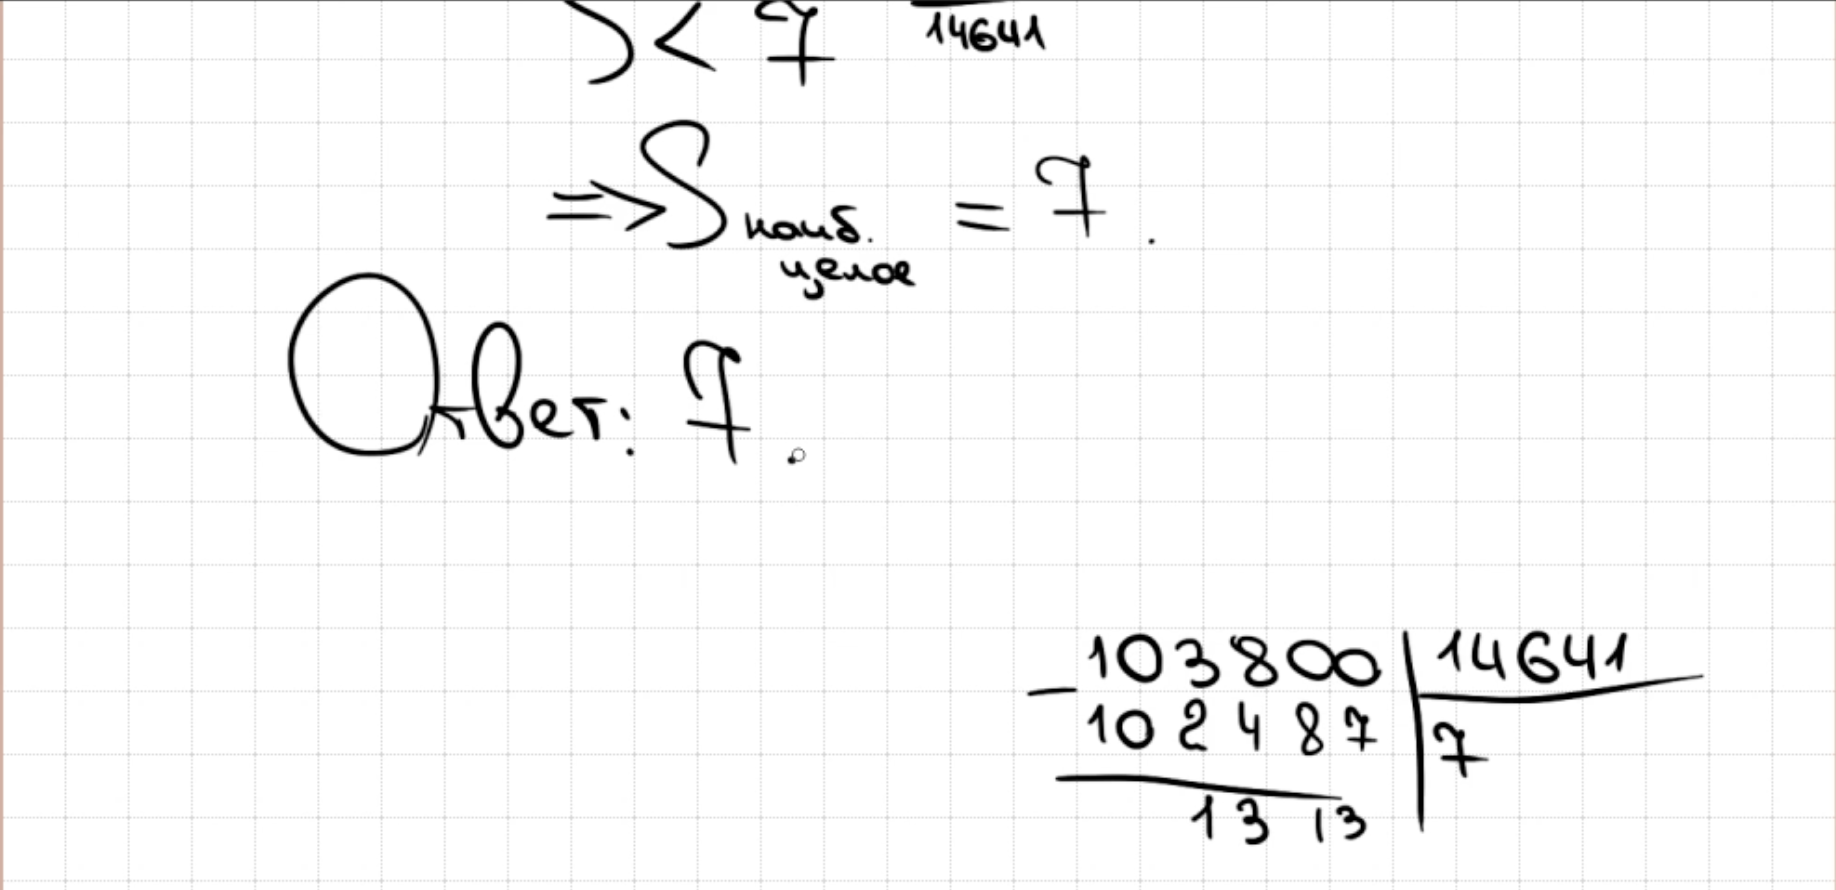 S < 7 14641
=> S наиб. целое = 7.
Ответ: 7.
103800 | 14641
− 102487 | 7
1313